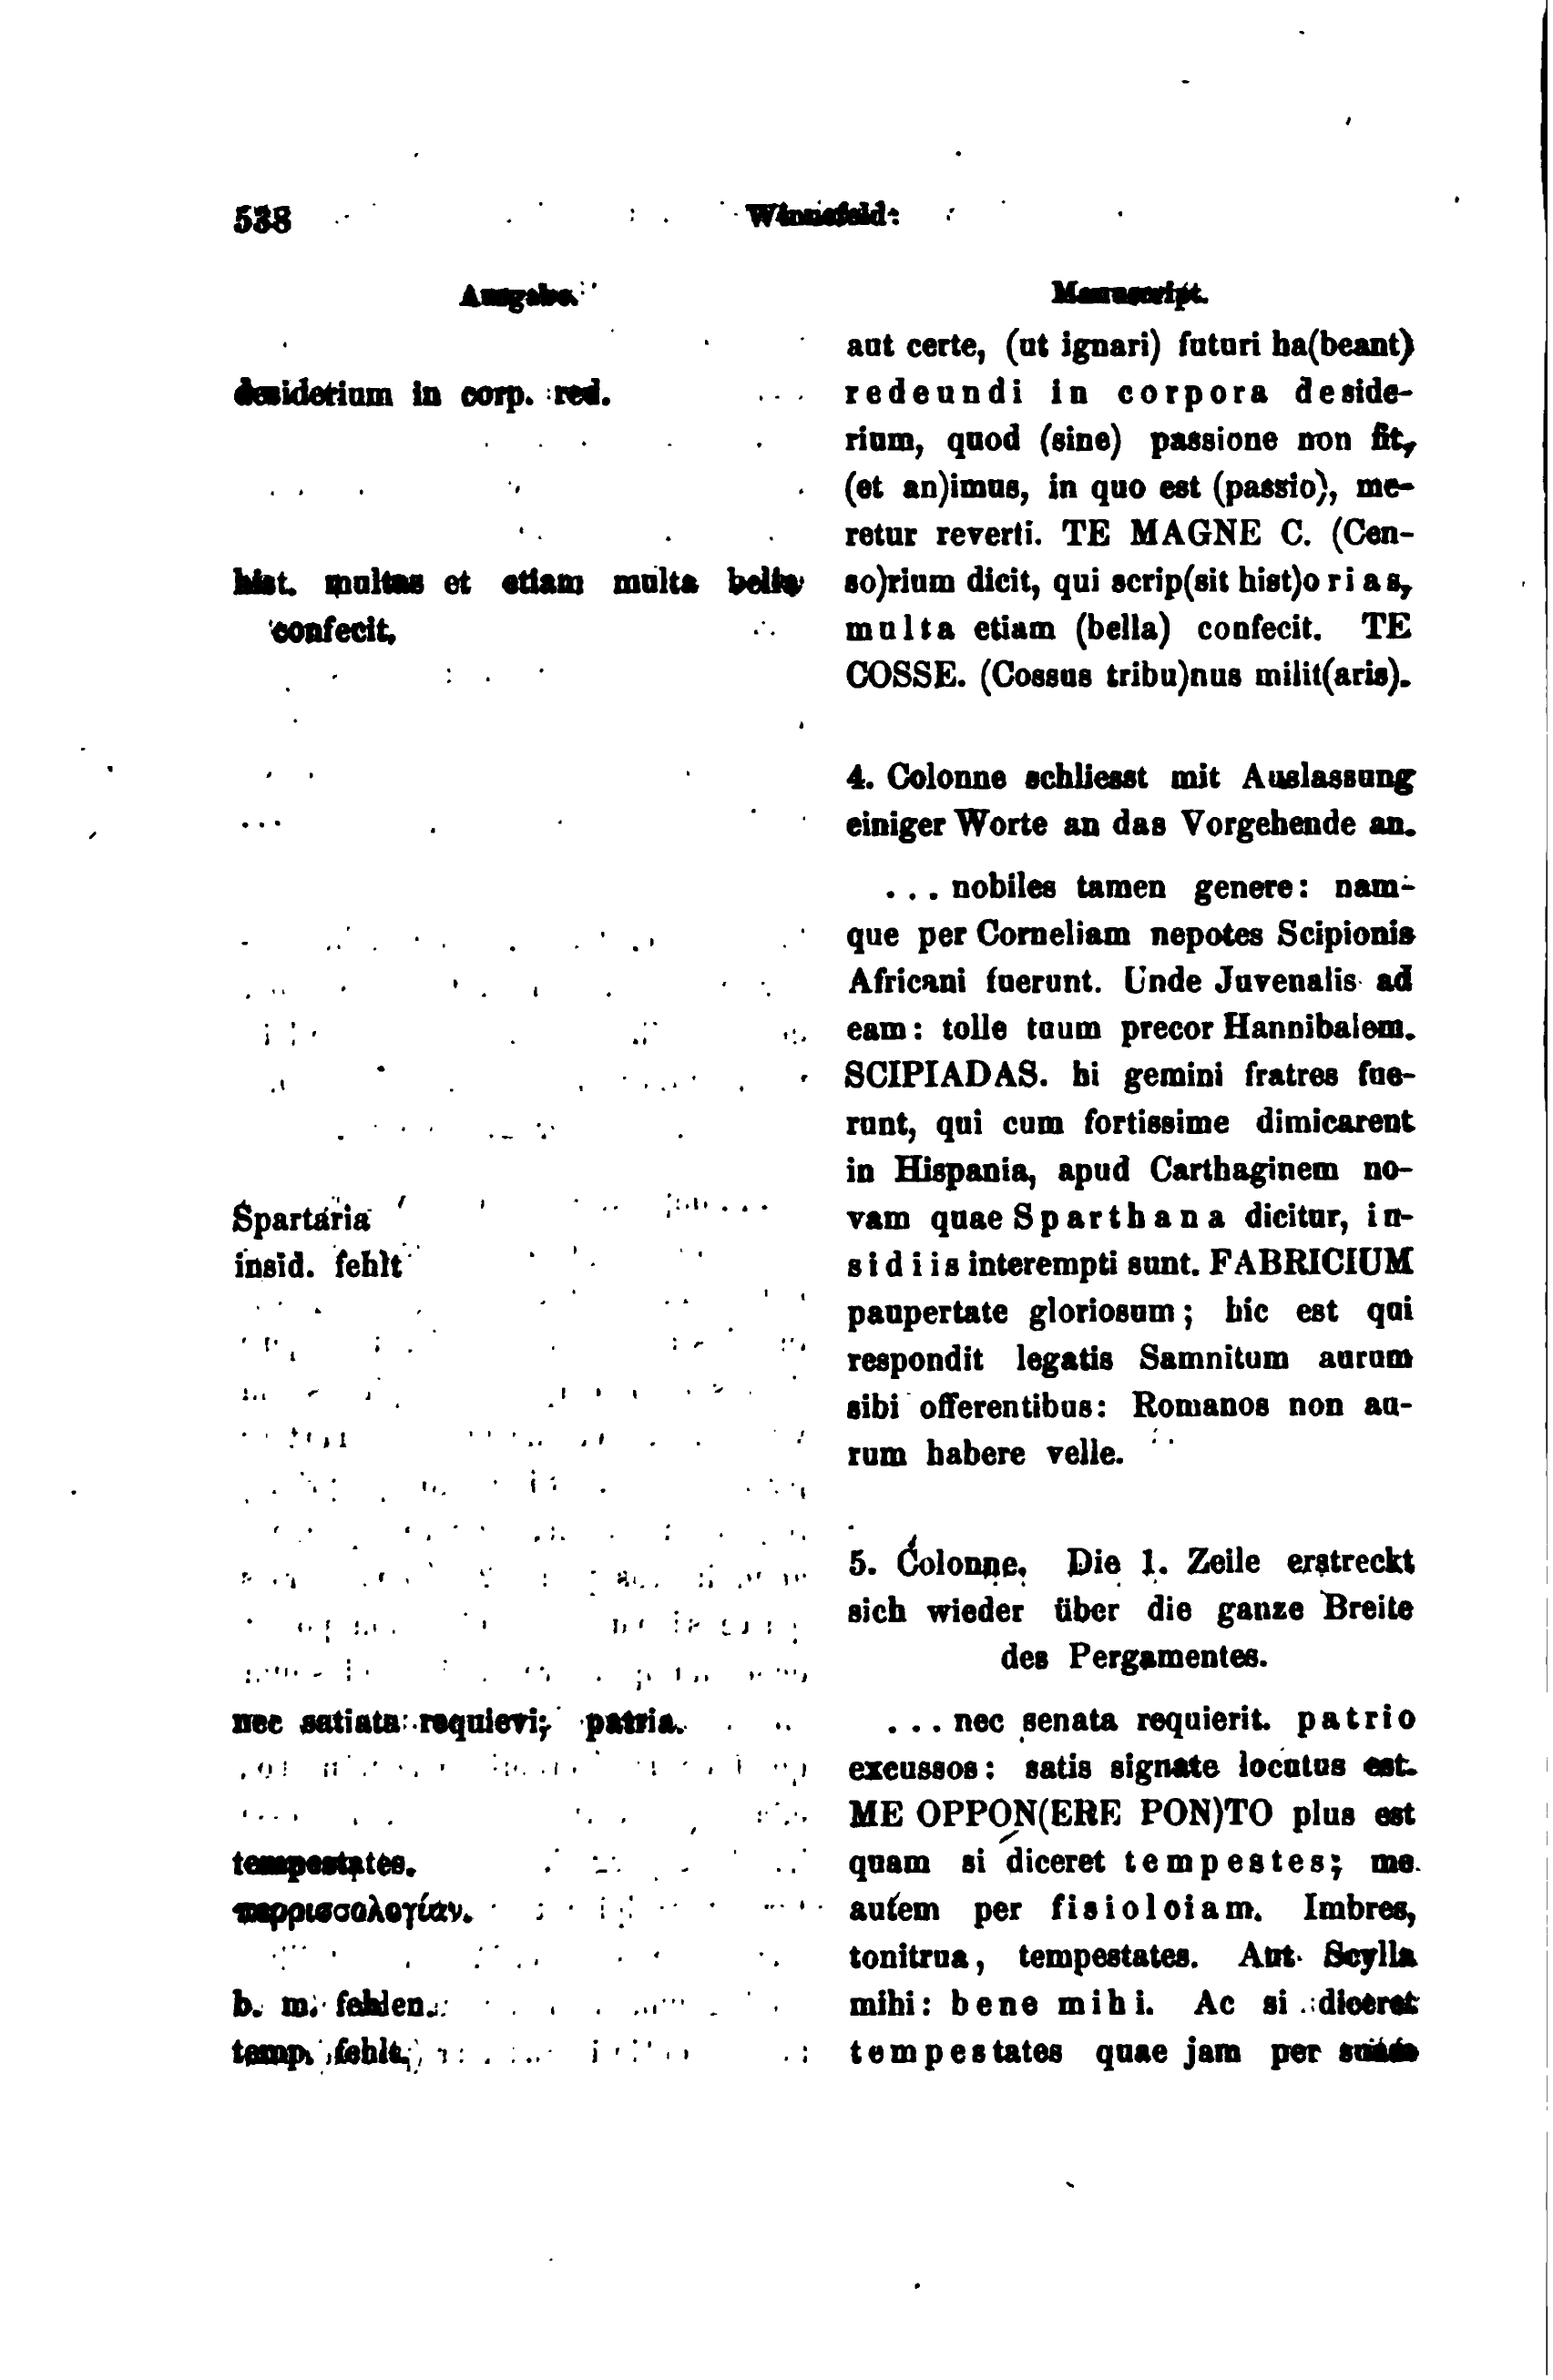 538 Winnefeld:
Ausgabe. Manuscript.
aut certe, (ut ignari) futuri ha(beant)
desiderium in corp. red. redeundi in corpora deside-
rium, quod (sine) passione non fit,
(et an)imus, in quo est (passio), me-
retur reverti. TE MAGNE C. (Cen-
hist. multas et etiam multa bella so)rium dicit, qui scrip(sit hist)orias,
confecit, multa etiam (bella) confecit. TE
COSSE. (Cossus tribu)nus milit(aris).
4. Colonne schliesst mit Auslassung
einiger Worte an das Vorgehende an.
... nobiles tamen genere: nam-
que per Corneliam nepotes Scipionis
Africani fuerunt. Unde Juvenalis ad
eam: tolle tuum precor Hannibalem.
SCIPIADAS. hi gemini fratres fue-
runt, qui cum fortissime dimicarent
in Hispania, apud Carthaginem no-
Spartaria vam quae Sparthana dicitur, in-
insid. fehlt sidiis interempti sunt. FABRICIUM
paupertate gloriosum; hic est qui
respondit legatis Samnitum aurum
sibi offerentibus: Romanos non au-
rum habere velle.
5. Colonne. Die 1. Zeile erstreckt
sich wieder über die ganze Breite
des Pergamentes.
nec satiata requievi; patria. ... nec senata requierit. patrio
excussos: satis signate locutus est.
ME OPPON(ERE PON)TO plus est
tempestates. quam si diceret tempestes; me
περρισσολογίαν. autem per fisioloiam. Imbres,
tonitrua, tempestates. Aut Scylla
b. m. fehlen. mihi: bene mihi. Ac si diceret
temp. fehlt. tempestates quae jam per